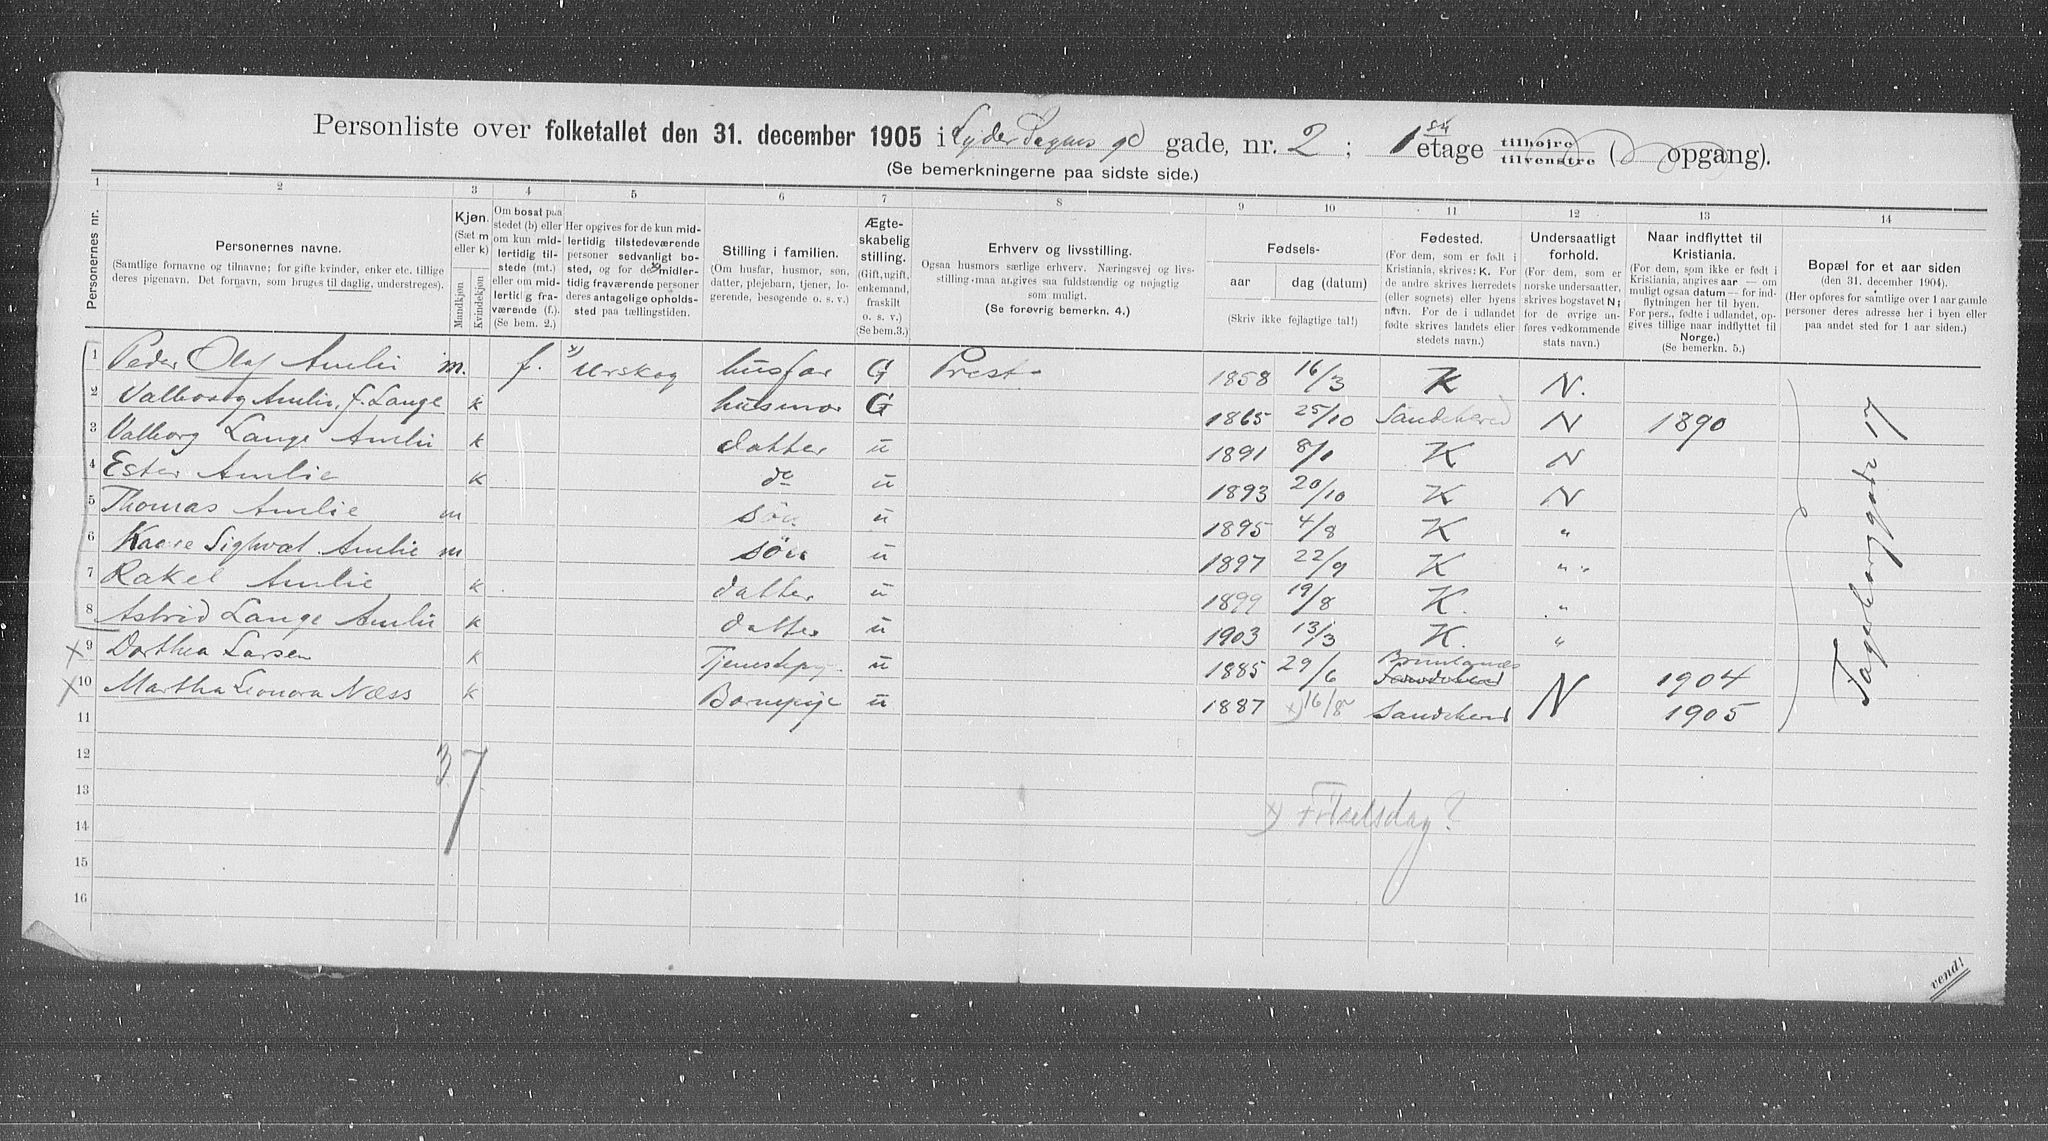 Personliste over folketallet den 31. december 1905 i Lyder Sagens gd gade, nr. 2; 1ste etage tilhøjre tilvenstre ( opgang).
(Se bemerkningerne paa sidste side.)
1 2 3 4 5 6 7 8 9 10 11 12 13 14
Personernes nr.
Personernes navne.
(Samtlige fornavne og tilnavne; for gifte kvinder, enker etc. tillige deres pigenavn. Det fornavn, som bruges til daglig, understreges).
Kjøn.
(Sæt m eller k)
Mandkjøn
Kvindekjøn
Om bosat paa stedet (b) eller om kun midlertidig tilstede (mt.) eller om midlertidig fraværende (f.) (Se bem. 2.)
Her opgives for de kun midlertidig tilstedeværende personer sedvanligt bosted, og for de x) midlertidig fraværende personer deres antagelige opholdssted paa tællingstiden.
Stilling i familien.
(Om husfar, husmor, søn, datter, plejebarn, tjener, logerende, besøgende o. s. v.)
Ægteskabelig stilling.
(Gift, ugift, enkemand, fraskilt o. s. v.)
(Se bem. 3.)
Erhverv og livsstilling.
Ogsaa husmors særlige erhverv. Næringsvej og livsstilling maa angives saa fuldstændig og nøjagtig som muligt.
(Se forøvrig bemerkn. 4.)
Fødsels-
aar dag (datum)
(Skriv ikke fejlagtige tal!)
Fødested.
(For dem, som er født i Kristiania, skrives: K. For de andre skrives herredets (eller sognets) eller byens navn. For de i udlandet fødte skrives landets eller stedets navn.)
Undersaatligt forhold.
(For dem, som er norske undersaatter, skrives bogstavet N; for de øvrige anføres vedkommende stats navn.)
Naar indflyttet til Kristiania.
(For dem, som ikke er født i Kristiania, angives aar — om muligt ogsaa datum — for indflytningen her til byen. For pers., fødte i udlandet, opgives tillige naar indflyttet til Norge.)
(Se bemerkn. 5.)
Bopæl for et aar siden
(den 31. december 1904.)
(Her opføres for samtlige over 1 aar gamle personer deres adresse her i byen eller paa andet sted for 1 aar siden.)
1 Peder Olaf Amlie m. f. x) Urskog husfar G Prest 1858 16/3 K N.
2 Valborg Amlie, f. Lange k husmor G 1865 25/10 Sandeherred N 1890
3 Valborg Lange Amlie k datter u 1891 8/1 K N
4 Ester Amlie k do u 1893 20/10 K N
5 Thomas Amlie m søn u 1895 4/8 K "
6 Kaare Sighvat Amlie m søn u 1897 22/9 K " "
7 Rakel Amlie k datter u 1899 19/8 K. "
8 Astrid Lange Amlie k datter u 1903 13/3 K. "
x 9 Dorthea Larsen k Tjenestepige u 1885 29/6 Brunlanæs Sandeherred 1904
x 10 Martha Leonora Næss k Barnepige u 1887 x) 16/8 Sandeherred N 1905
Fagerborggata 17
11
12 3 7
13 x) Fødselsdag?
14
15
16
vend!